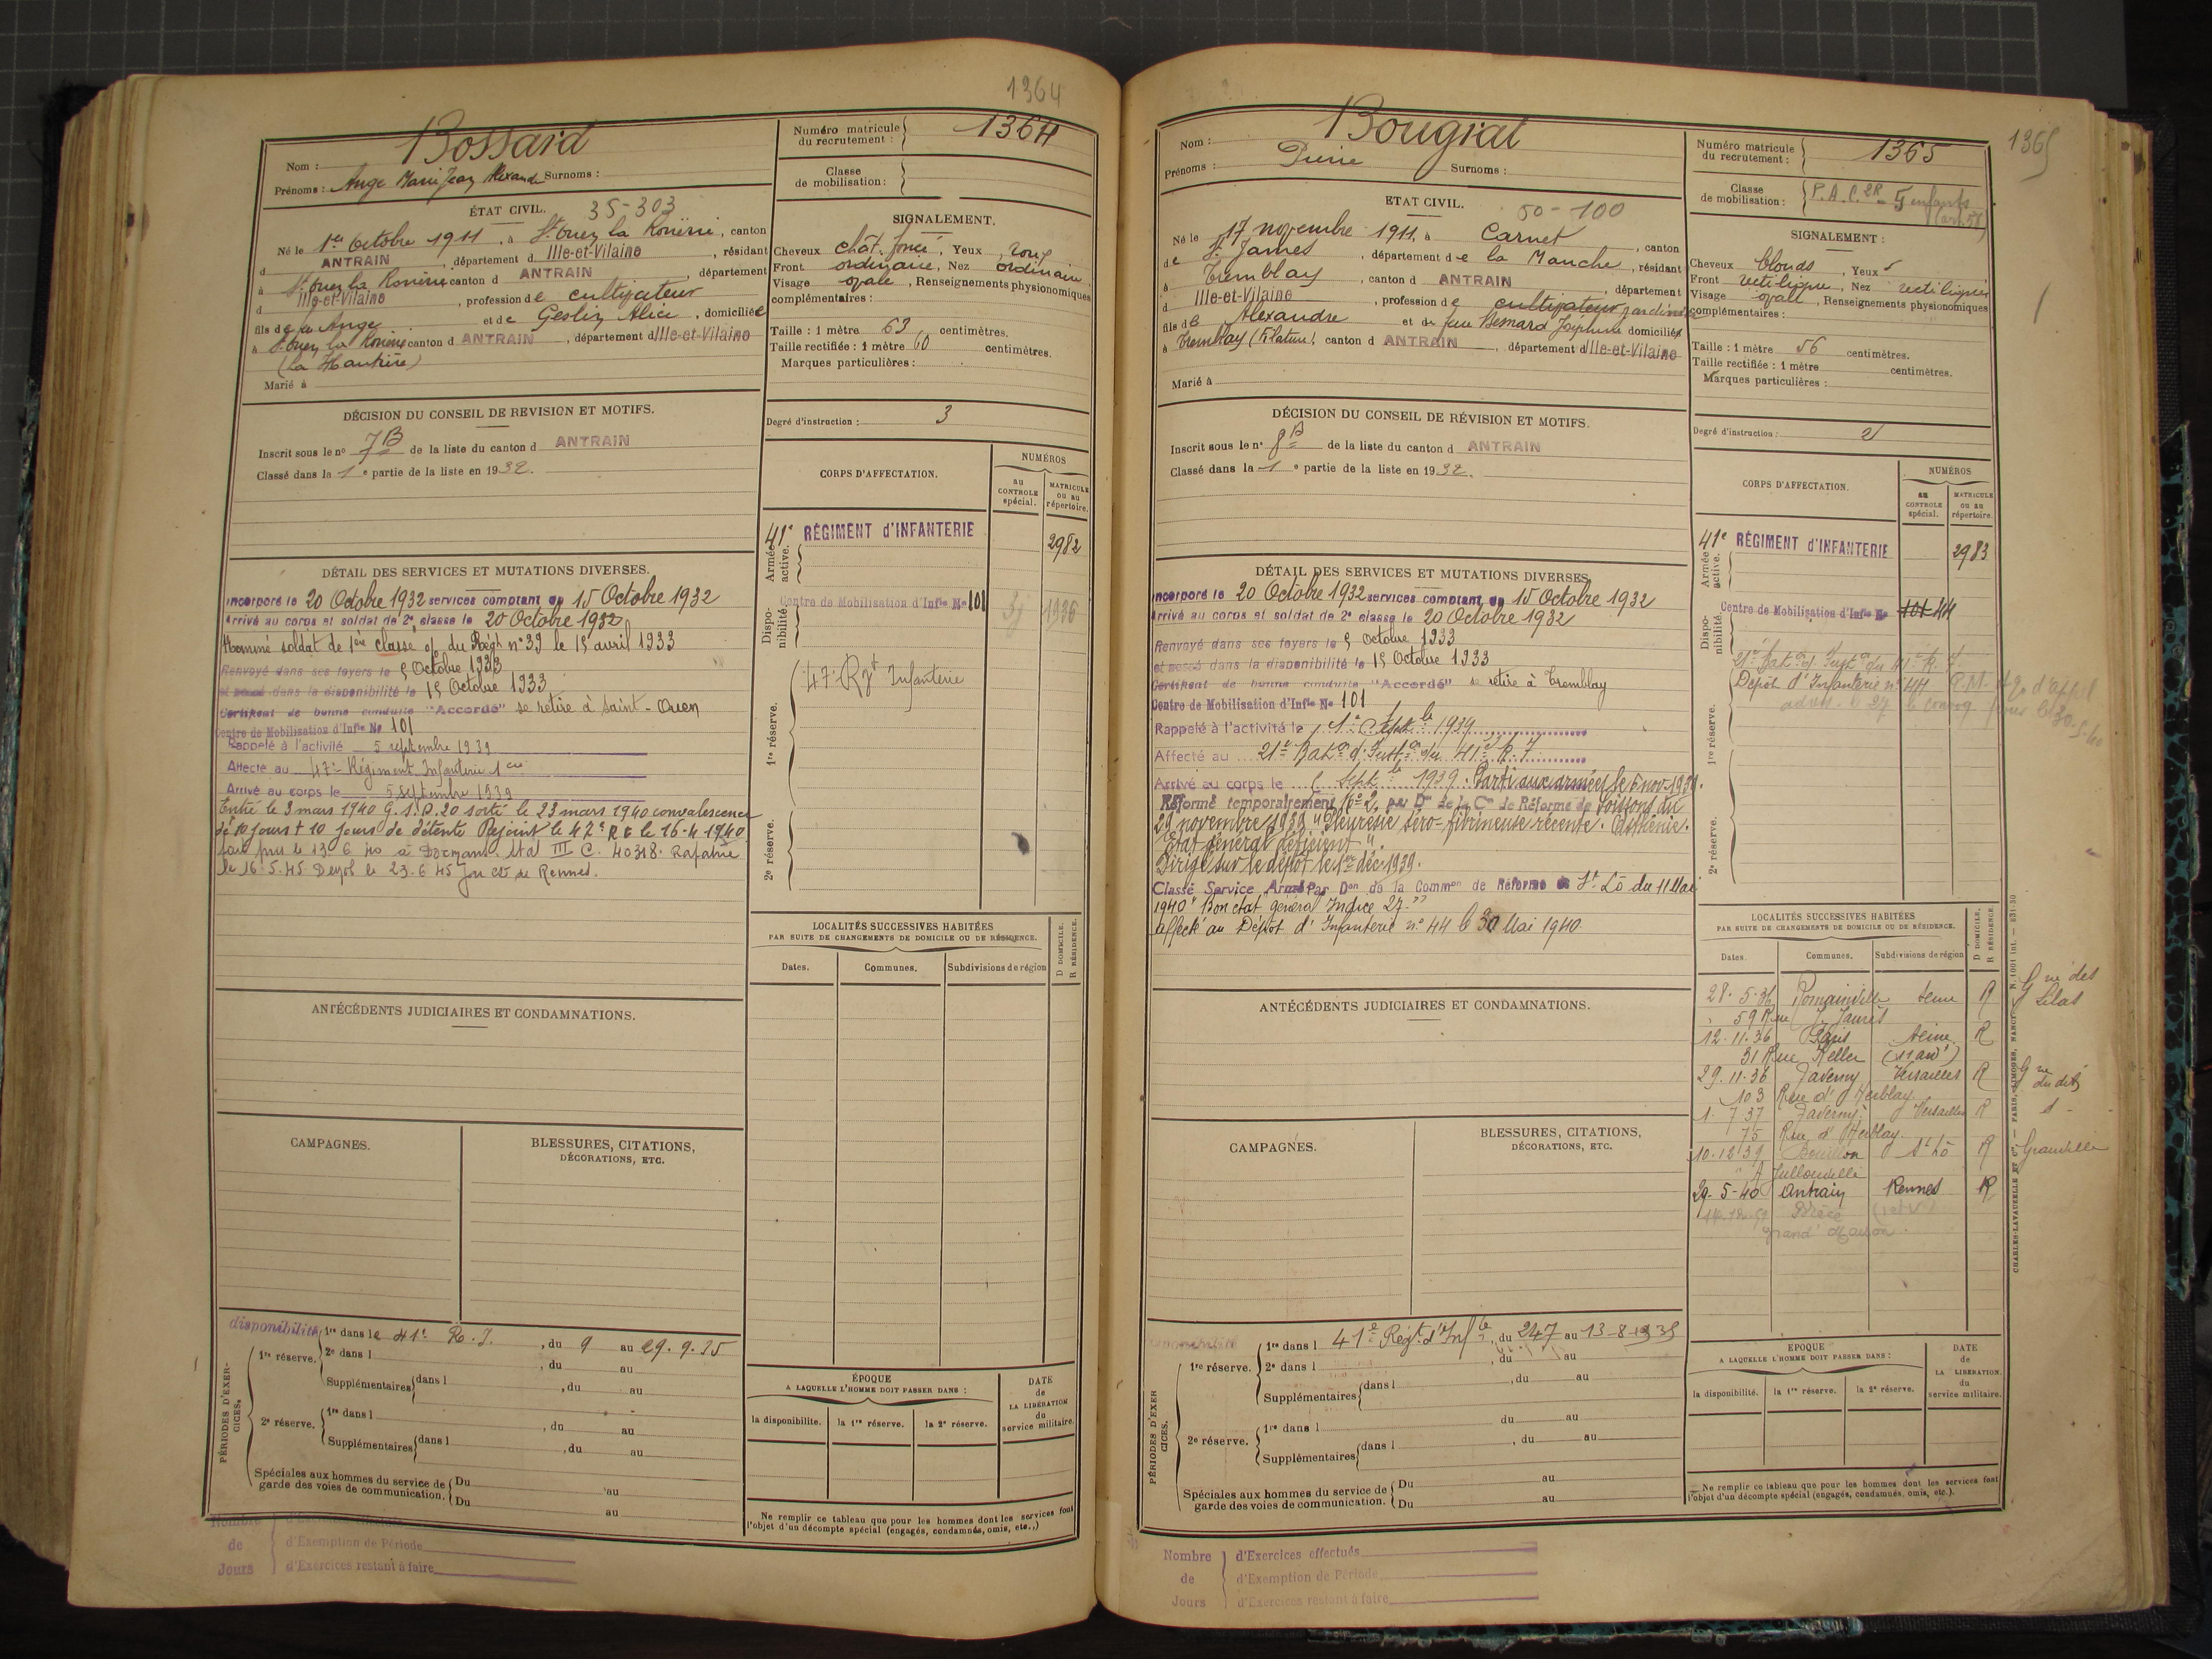 1364
Nom : Bossard
Prénoms : Ange Marie Jean Alexandre Surnoms :
Numéro matricule du recrutement : 1364
Classe de mobilisation :
ÉTAT CIVIL. 35-303
Né le 1er Octobre 1911, à St Ouen la Rouërie, canton
d ANTRAIN, département d Ille-et-Vilaine, résidant
à St Ouen la Rouërie canton d ANTRAIN, département
d Ille-et-Vilaine, profession de cultivateur
fils de Ange et de Geslin Alice, domiciliée
à St Ouen la Rouërie canton d ANTRAIN, département d Ille-et-Vilaine
Marié à
SIGNALEMENT.
Cheveux chât. foncé, Yeux roux
Front ordinaire, Nez ordinaire
Visage ovale, Renseignements physionomiques
complémentaires :
Taille : 1 mètre 63 centimètres.
Taille rectifiée : 1 mètre 60 centimètres.
Marques particulières :
DÉCISION DU CONSEIL DE REVISION ET MOTIFS.
Inscrit sous le no 7B de la liste du canton d ANTRAIN
Classé dans la 1e partie de la liste en 1932.
Degré d'instruction : 3
CORPS D'AFFECTATION.
NUMÉROS
au CONTROLE spécial.
MATRICULE ou au répertoire.
Armée active.
41e RÉGIMENT d'INFANTERIE 2982
Dispo-nibilité.
Centre de Mobilisation d'Infie No 101 1936
1re réserve.
47e Rgt Infanterie
2e réserve.
DÉTAIL DES SERVICES ET MUTATIONS DIVERSES.
Incorporé le 20 Octobre 1932 services comptant du 15 Octobre 1932
Arrivé au corps et soldat de 2e classe le 20 Octobre 1932
Nommé soldat de 1ère classe o/ du Régt no 39 le 15 avril 1933
Renvoyé dans ses foyers le 5 Octobre 1933
et passé dans la disponibilité le 15 Octobre 1933
Certificat de bonne conduite "Accordé" se retire à Saint-Ouen
Centre de Mobilisation d'Infie No 101
Rappelé à l'activité 5 septembre 1939
Affecté au 47e Régiment Infanterie 1 cie
Arrivé au corps le 5 septembre 1939
Entré le 3 mars 1940 G.S.A. 20 sorti le 23 mars 1940 convalescence
de 10 jours + 10 jours de détente Rejoint le 47e R I le 16-4 1940
fait pris le 13 6 40 à Dormans. Stal III C. 40318. Rapatrié
le 16.5.45 Depot le 23.6.45 par CD de Rennes.
LOCALITÉS SUCCESSIVES HABITÉES
PAR SUITE DE CHANGEMENTS DE DOMICILE OU DE RÉSIDENCE.
Dates. Communes. Subdivisions de région
D DOMICILE. R RÉSIDENCE.
ANTÉCÉDENTS JUDICIAIRES ET CONDAMNATIONS.
CAMPAGNES.
BLESSURES, CITATIONS,
DÉCORATIONS, ETC.
PÉRIODES D'EXER-CICES.
disponibilité
1re réserve. 1re dans le 41e R.I., du 9 au 29.9.35
2e dans l , du au
Supplémentaires dans l , du au
2e réserve. 1re dans l , du au
Supplémentaires dans l , du au
Spéciales aux hommes du service de garde des voies de communication. Du au
Du au
ÉPOQUE
A LAQUELLE L'HOMME DOIT PASSER DANS :
la disponibilité. la 1re réserve. la 2e réserve.
DATE de LA LIBÉRATION du service militaire.
Ne remplir ce tableau que pour les hommes dont les services font
l'objet d'un décompte spécial (engagés, condamnés, omis, etc.,)
Nombre de Jours
d'Exemption de Période
d'Exercices restant à faire
1365
Nom : Bougrat
Prénoms : Pierre Surnoms :
Numéro matricule du recrutement : 1365
Classe de mobilisation : 5 enfants
ETAT CIVIL. 50-100
Né le 17 novembre 1911, à Carnet, canton
de St James, département de la Manche, résidant
à Tremblay, canton d ANTRAIN, département
d Ille-et-Vilaine, profession de cultivateur jardinier
fils de Alexandre et de feue Besnard Joséphine domiciliés
à Tremblay, canton d ANTRAIN, département d Ille-et-Vilaine
Marié à
SIGNALEMENT :
Cheveux blonds, Yeux
Front rectiligne, Nez rectiligne
Visage ovale, Renseignements physionomiques
complémentaires :
Taille : 1 mètre 56 centimètres.
Taille rectifiée : 1 mètre centimètres.
Marques particulières :
DÉCISION DU CONSEIL DE RÉVISION ET MOTIFS.
Inscrit sous le no 8B de la liste du canton d ANTRAIN
Classé dans la 1e partie de la liste en 1932.
Degré d'instruction : 2
CORPS D'AFFECTATION.
NUMÉROS
au CONTROLE spécial.
MATRICULE ou au répertoire.
Armée active.
41e RÉGIMENT d'INFANTERIE 2983
Dispo-nibilité.
Centre de Mobilisation d'Infie No 101 44
21e Baton d'Inston du 41e R.I.
Dépôt d'Infanterie no 44
1re réserve.
2e réserve.
DÉTAIL DES SERVICES ET MUTATIONS DIVERSES.
Incorporé le 20 Octobre 1932 services comptant du 15 Octobre 1932
Arrivé au corps et soldat de 2e classe le 20 Octobre 1932
Renvoyé dans ses foyers le 5 Octobre 1933
et passé dans la disponibilité le 15 Octobre 1933
Certificat de bonne conduite "Accordé" se retire à Tremblay
Centre de Mobilisation d'Infie No 101
Rappelé à l'activité le 1er Septbre 1939
Affecté au 21e Baton d'Instron du 41e R.I.
Arrivé au corps le Septbre 1939. Parti aux armées le 5 nov. 1939.
Réformé temporairement No 2, par Don de la Con de Réforme de Soissons du
29 novembre 1939 "Pleurésie séro-fibrineuse récente. Asthénie.
Etat général déficient".
Dirigé sur le dépôt le 1er déc. 1939.
Classé Service Armé Par Don de la Common de Réforme de St Lô du 11 Mai
1940 "Bon état général Indice 27."
Affecté au Dépôt d'Infanterie no 44 le 30 Mai 1940
LOCALITÉS SUCCESSIVES HABITÉES
PAR SUITE DE CHANGEMENTS DE DOMICILE OU DE RÉSIDENCE.
Dates. Communes. Subdivisions de région
D DOMICILE. R RÉSIDENCE.
28.5.36 Romainville Seine R Gne des Lilas
59 Rue J. Jaurès
12.11.36 Paris Seine R
31 Rue Keller (11 ardt)
29.11.36 Taverny Versailles R Gne dudit
103 Rue d'Herblay
1.7.37 Taverny Versailles R
75 Rue d'Herblay.
10.12.39 Bouillon St Lô R Granville
à Jullouville
29-5-40 Antrain Rennes R
Grand'Maison
ANTÉCÉDENTS JUDICIAIRES ET CONDAMNATIONS.
CAMPAGNES.
BLESSURES, CITATIONS,
DÉCORATIONS, ETC.
PÉRIODES D'EXER CICES.
1re réserve. 1re dans l 41e Régt. d'Infie, du 24 7 au 13-8-1935
2e dans l , du au
Supplémentaires dans l , du au
2e réserve. 1re dans l du au
Supplémentaires dans l , du au
Spéciales aux hommes du service de garde des voies de communication. Du au
Du au
EPOQUE
A LAQUELLE L'HOMME DOIT PASSER DANS :
la disponibilité. la 1re réserve. la 2e réserve.
DATE de LA LIBÉRATION du service militaire.
Ne remplir ce tableau que pour les hommes dont les services font
l'objet d'un décompte spécial (engagés, condamnés, omis, etc.).
Nombre de Jours
d'Exercices effectués
d'Exemption de Période
d'Exercices restant à faire
CHARLES-LAVAUZELLE ET Cie. — PARIS, LIMOGES, NANCY